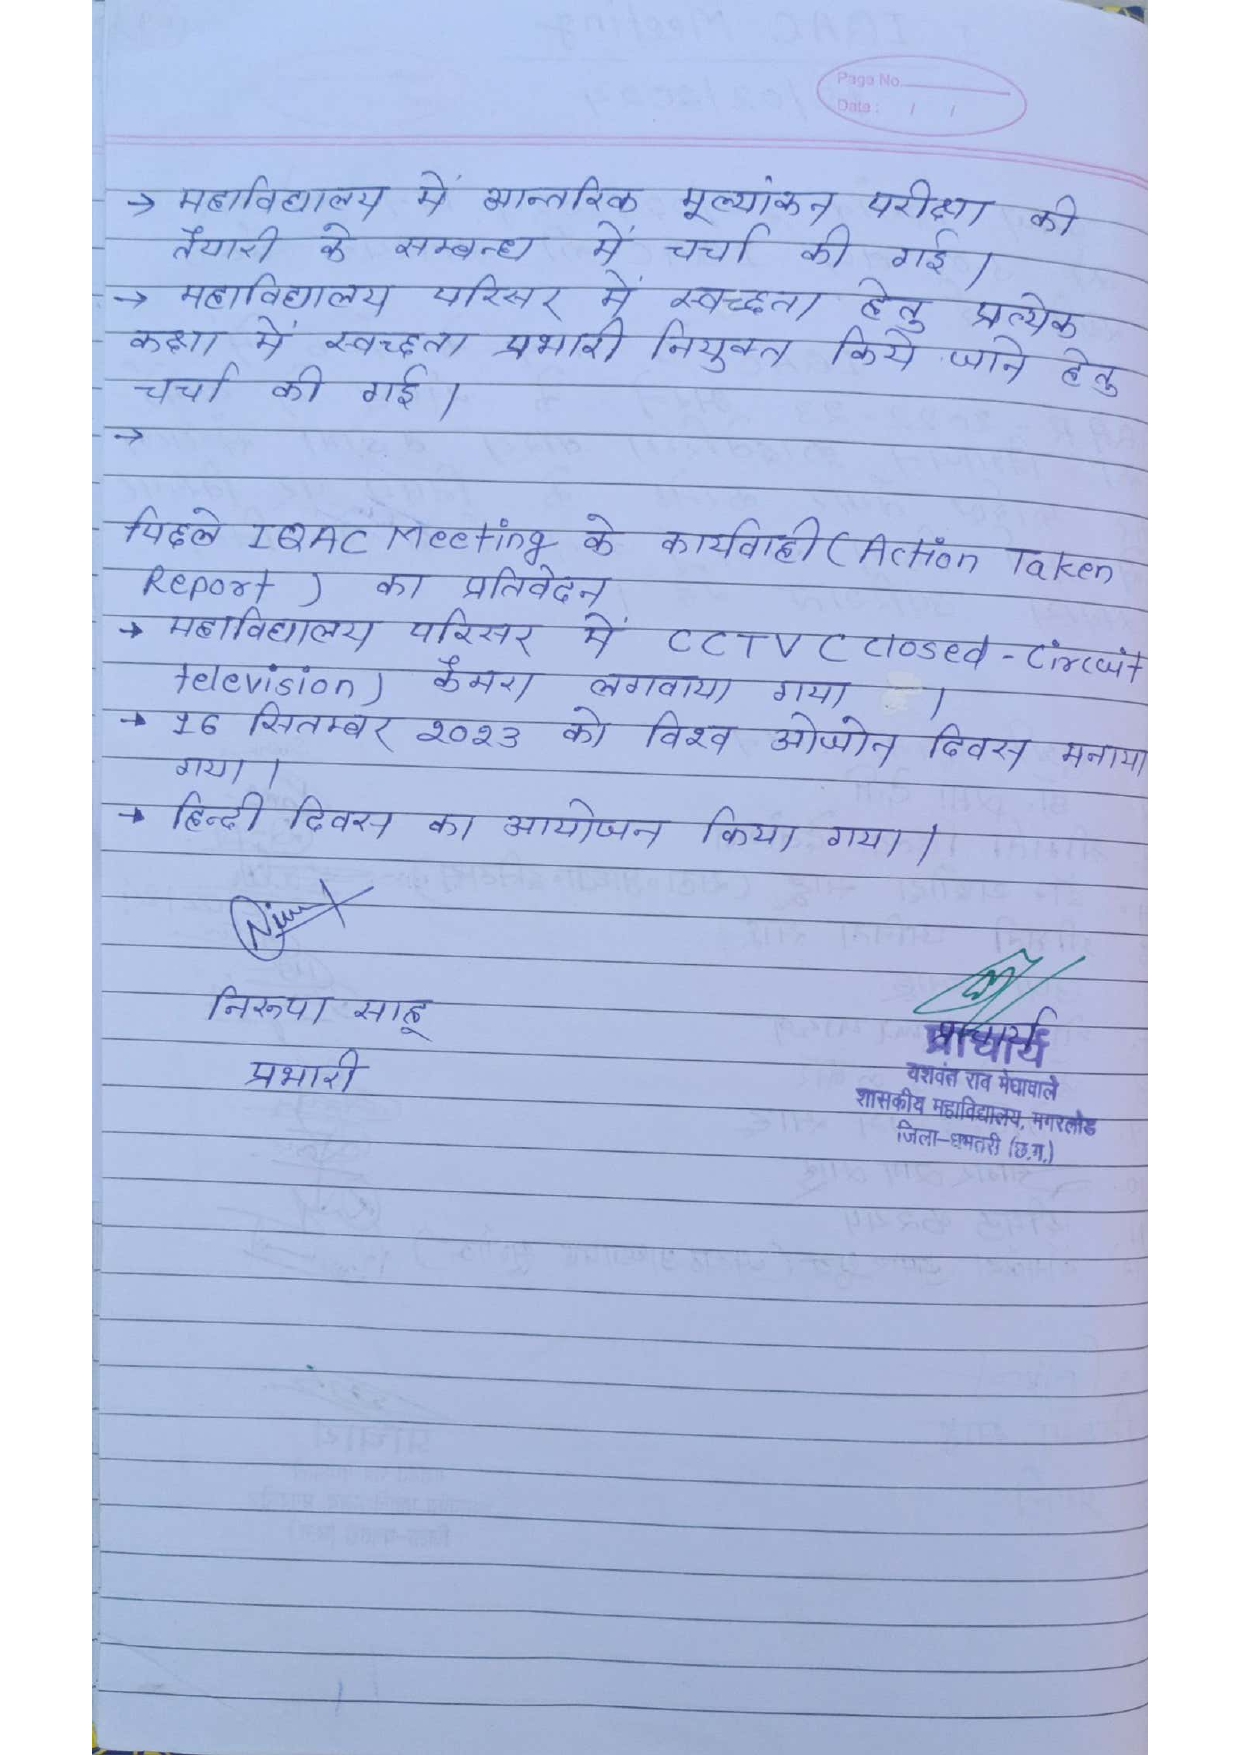 Page No.
Date : / /
→ महाविद्यालय में आन्तरिक मूल्यांकन परीक्षा की
तैयारी के सम्बन्ध में चर्चा की गई।
→ महाविद्यालय परिसर में स्वच्छता हेतु प्रत्येक
कक्षा में स्वच्छता प्रभारी नियुक्त किये जाने हेतु
चर्चा की गई।
→
पिछले IQAC Meeting के कार्यवाही (Action Taken
Report) का प्रतिवेदन
→ महाविद्यालय परिसर में CCTV (Closed-Circuit
television) कैमरा लगवाया गया ।
→ 16 सितम्बर २०२३ को विश्व ओजोन दिवस मनाया
गया।
→ हिन्दी दिवस का आयोजन किया गया।
निरूपा साहू
प्रभारी
प्राचार्य
प्राचार्य
यशवंत राव मेघावाले
शासकीय महाविद्यालय, मगरलोड
जिला-धमतरी (छ.ग.)